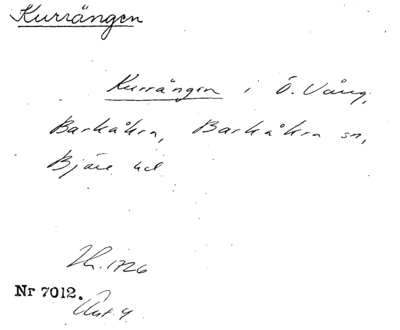 Kurrängen
Kurrängen i Ö. Vång,
Barkåkra, Barkåkra sn,
Bjäre hd
Nr 7012.